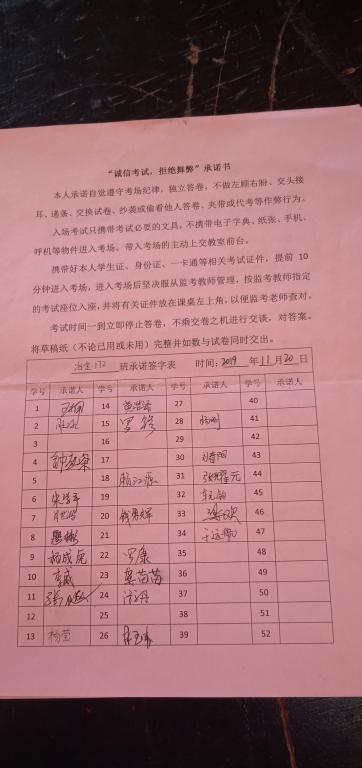 “诚信考试，拒绝舞弊”承诺书
本人承诺自觉遵守考场纪律，独立答卷，不做左顾右盼、交头接
耳、递条、交换试卷、抄袭或偷看他人答卷、夹带或代考等作弊行为。
入场考试只携带考试必要的文具，不携带电子字典、纸张、手机、
呼机等物件进入考场。带入考场的主动上交教室前台。
携带好本人学生证、身份证、一卡通等相关考试证件，提前 10
分钟进入考场，进入考场后坚决服从监考教师管理，按监考教师指定
的考试座位入座，并将有关证件放在课桌左上角，以便监考老师查对。
考试时间一到立即停止答卷，不乘交卷之机进行交谈，对答案。
将草稿纸（不论已用或未用）完整并如数与试卷同时交出。
冶金172 班承诺签字表 时间：2019 年 11 月 20 日
学号 承诺人 学号 承诺人 学号 承诺人 学号 承诺人
1 14 27 40
2 15 罗 28 41
3 16 29 42
4 17 30 43
5 18 31 张 元 44
6 19 32 45
7 20 钱 辉 33 46
8 21 34 47
9 杨成虎 22 罗康 35 48
10 李威 23 莫苗苗 36 49
11 24 汪丹 37 50
12 25 38 51
13 杨莹 26 39 52